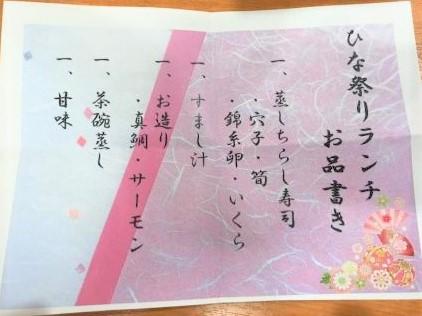 ひな祭りランチ
お品書き
一、蒸しちらし寿司
・穴子・筍
・錦糸卵・いくら
一、すまし汁
一、お造り
・真鯛・サーモン
一、茶碗蒸し
一、甘味